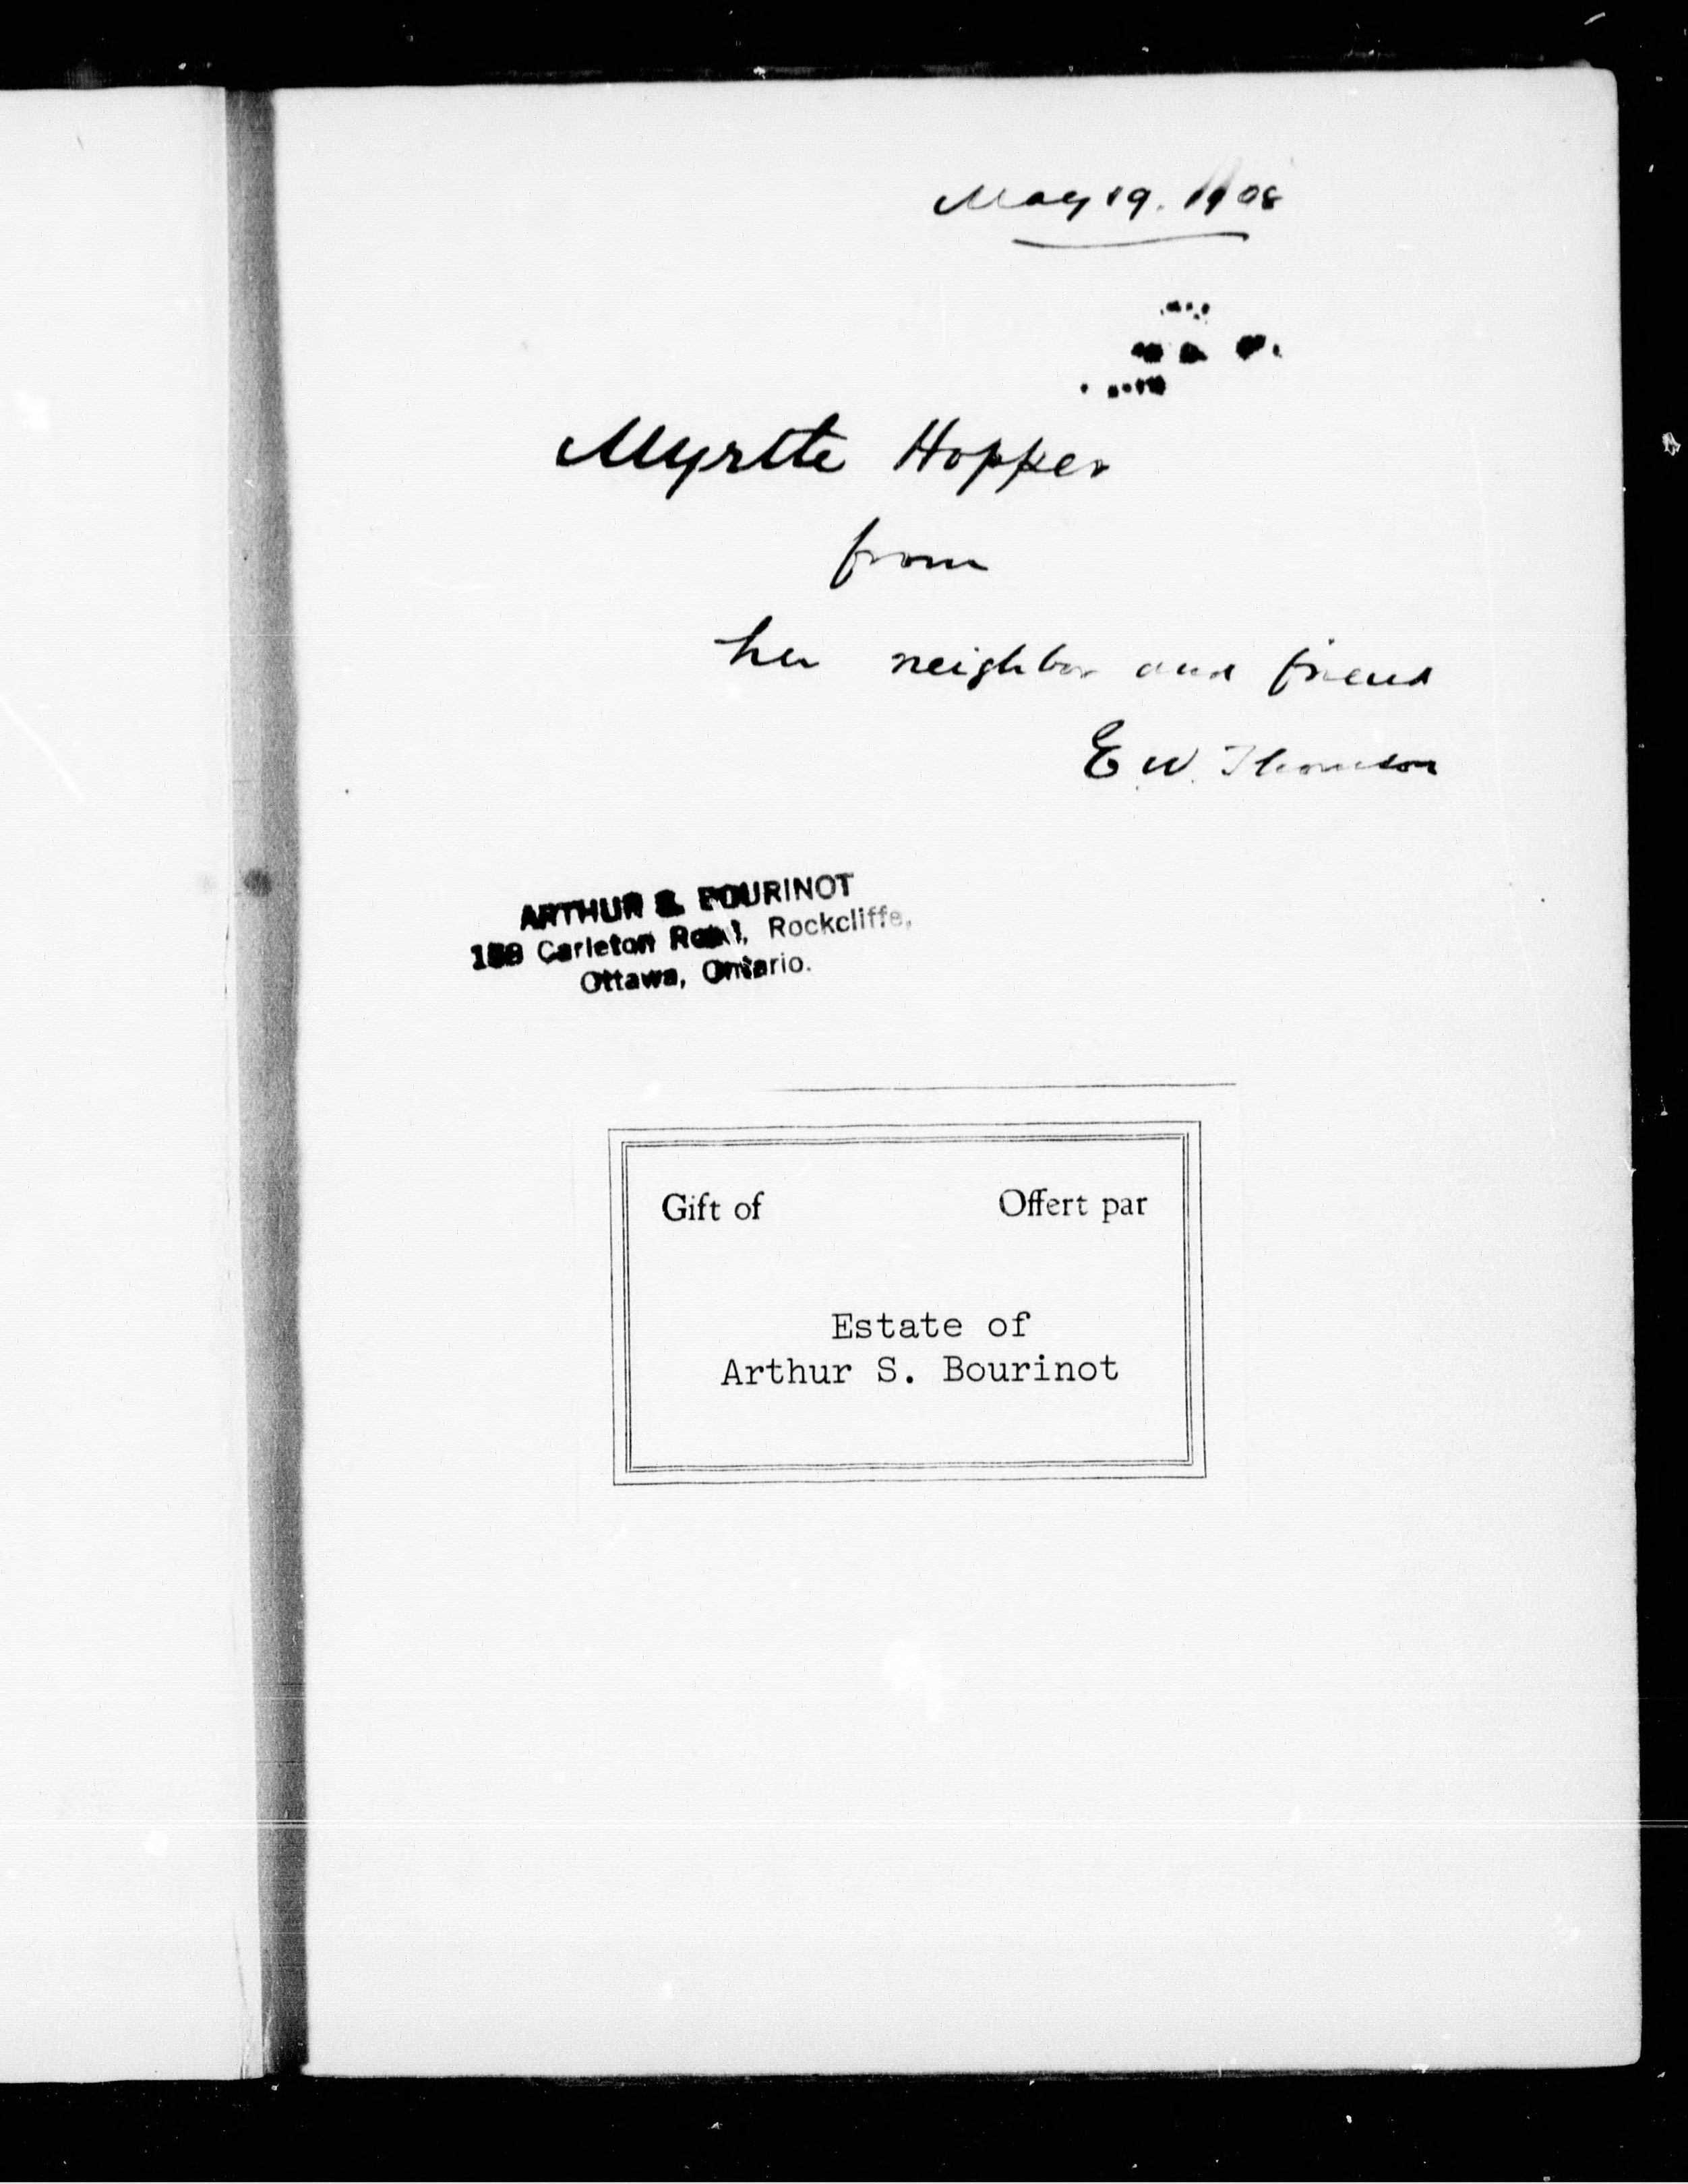 May 19. 1908
Myrtle Hopper
from
her neighbor and friend
E. W. Thomson
ARTHUR S. BOURINOT
Carleton Road, Rockcliffe,
Ottawa, Ontario.
Gift of Offert par
Estate of
Arthur S. Bourinot